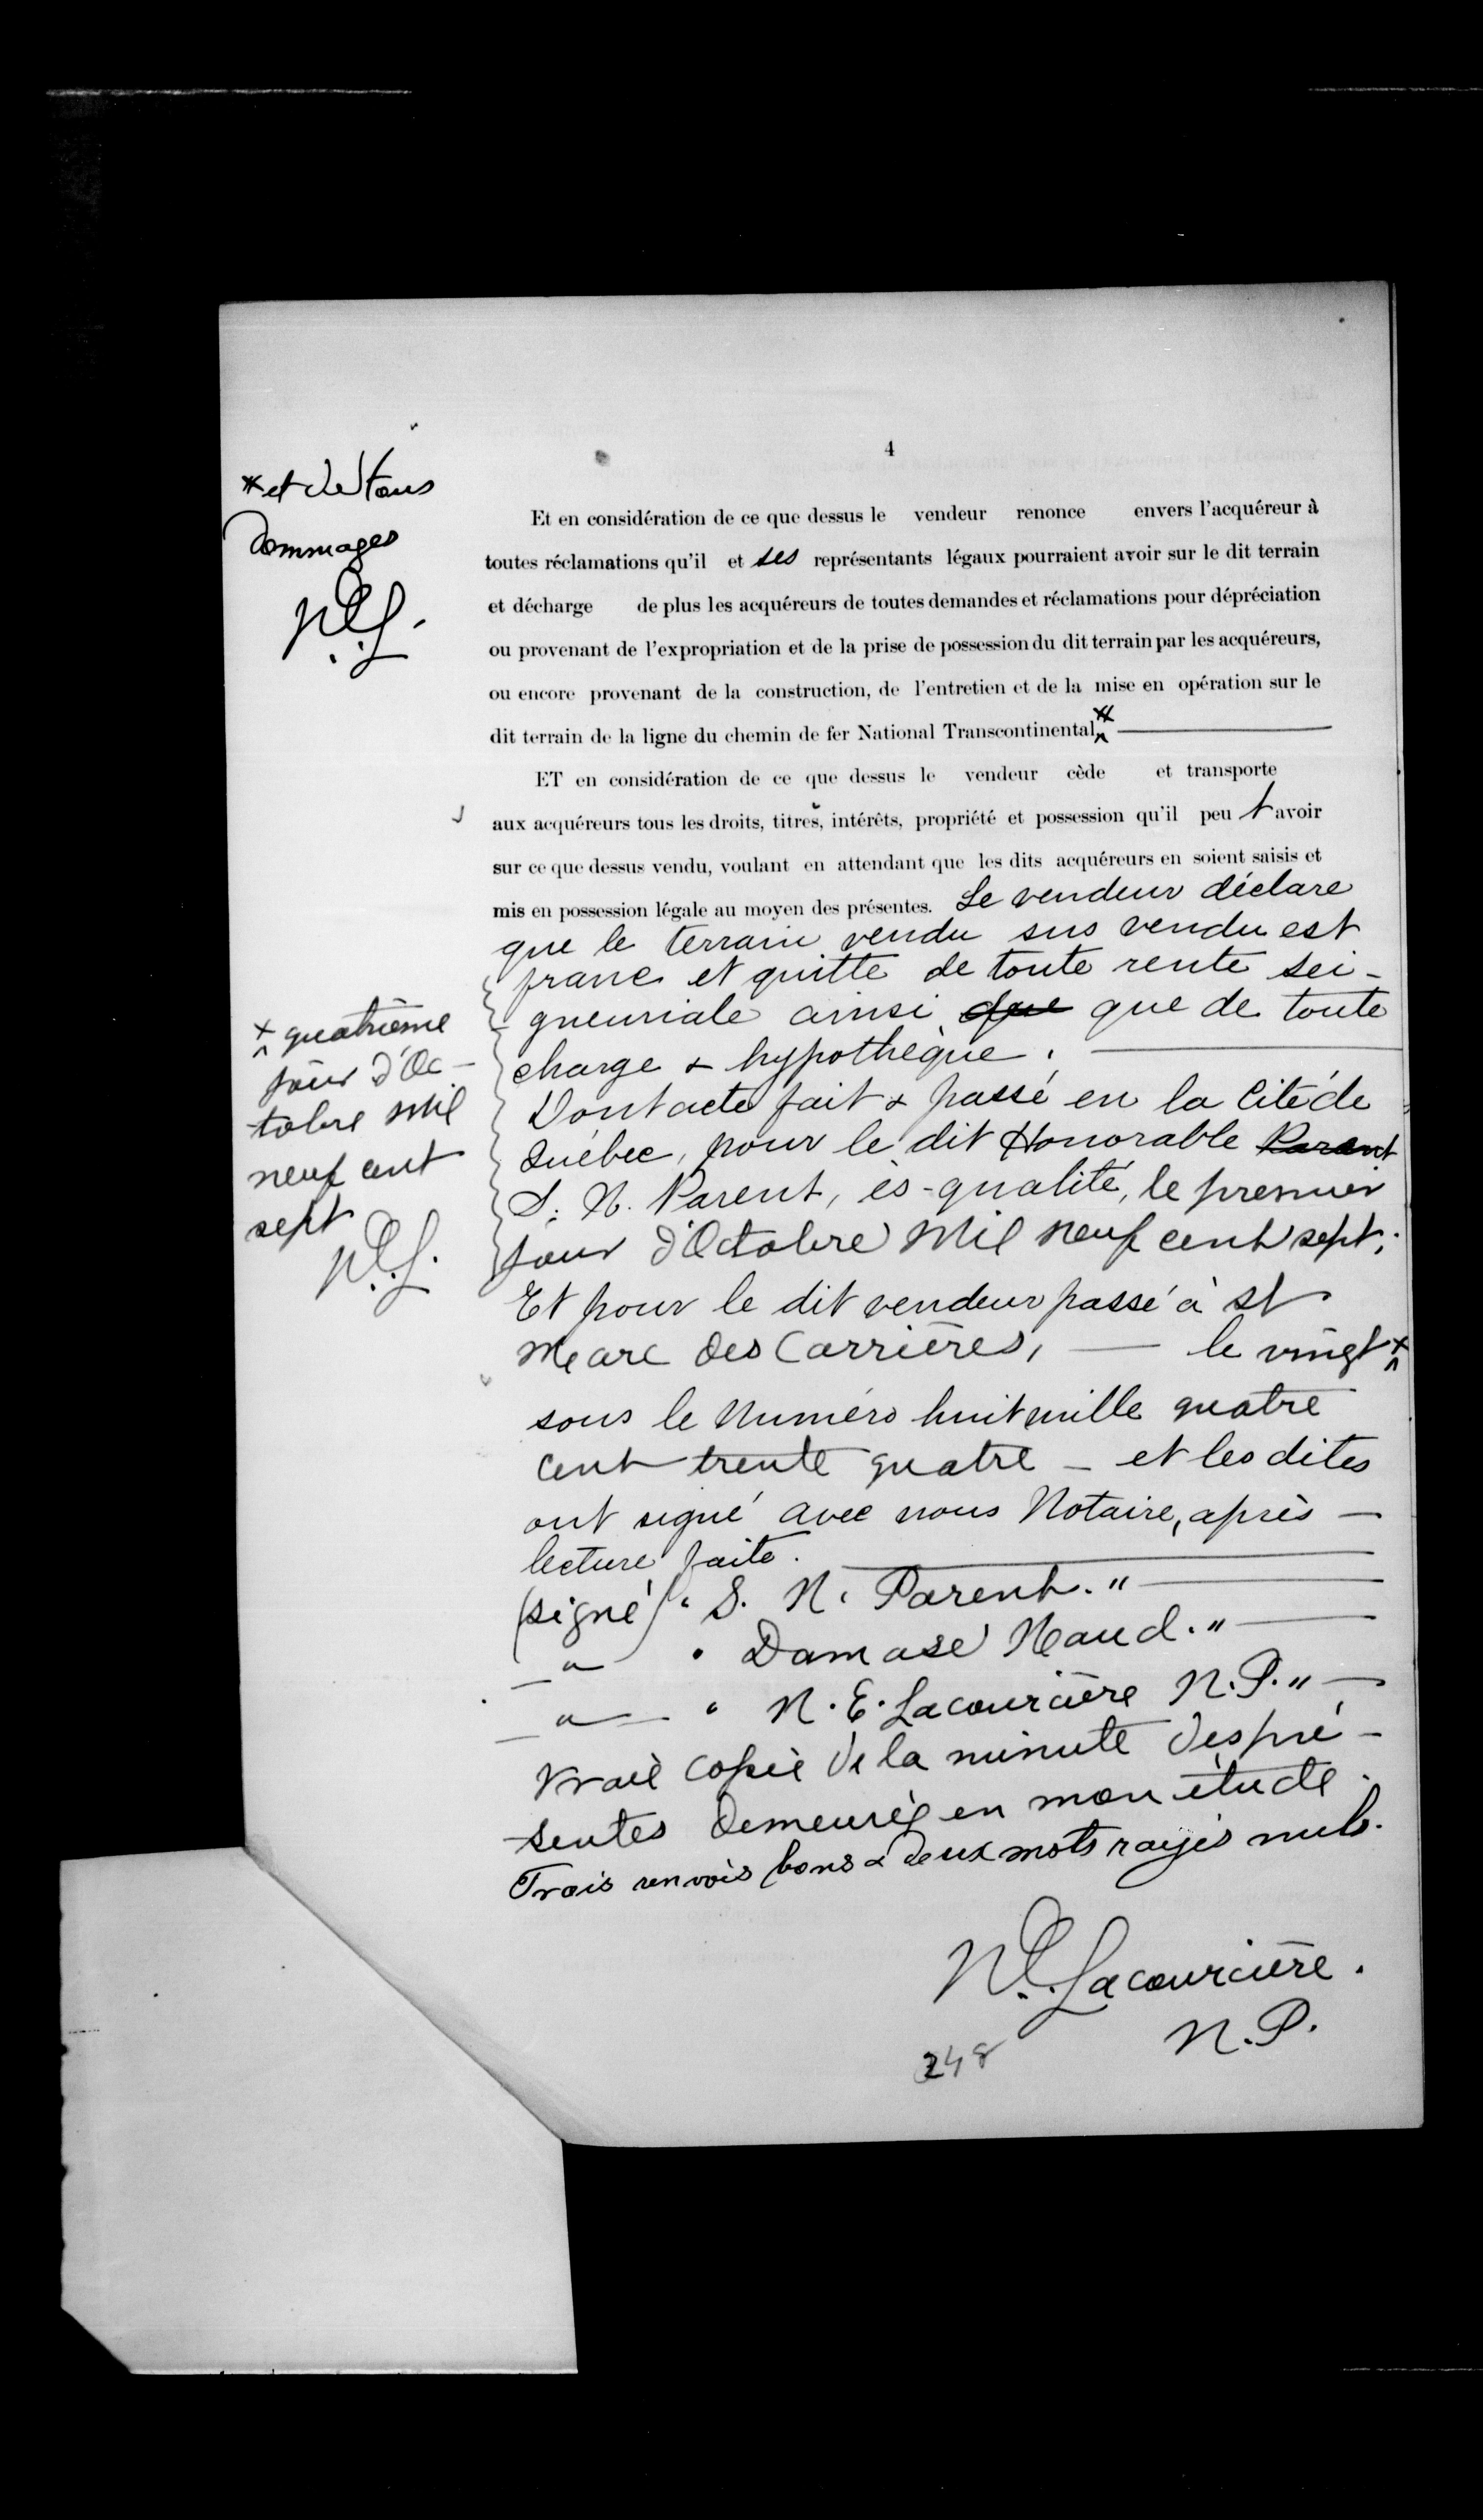 4
* et de tous
dommages
N.E.L.
Et en considération de ce que dessus le vendeur renonce envers l'acquéreur à
toutes réclamations qu'il et ses représentants légaux pourraient avoir sur le dit terrain
et décharge de plus les acquéreurs de toutes demandes et réclamations pour dépréciation
ou provenant de l'expropriation et de la prise de possession du dit terrain par les acquéreurs,
ou encore provenant de la construction, de l'entretien et de la mise en opération sur le
dit terrain de la ligne du chemin de fer National Transcontinental *
ET en considération de ce que dessus le vendeur cède et transporte
aux acquéreurs tous les droits, titres, intérêts, propriété et possession qu'il peut avoir
sur ce que dessus vendu, voulant en attendant que les dits acquéreurs en soient saisis et
mis en possession légale au moyen des présentes. Le vendeur déclare
que le terrain vendu sus vendu est
franc et quitte de toute rente sei-
gneuriale ainsi que que de toute
charge & hypothèque.
Dont acte fait & passé en la Cité de
Québec, pour le dit Honorable Parent
S. N. Parent, ès-qualité, le premier
jour d'Octobre Mil neuf cent sept;
Et pour le dit vendeur passé à St
Marc des Carrières, — le vingt x
x quatrième
jour d'Oc-
tobre Mil
neuf cent
sept
N.E.L.
sous le Numéro huit mille quatre
cent trente quatre - et les dites
ont signé avec nous Notaire, après —
lecture faite.
(signé) " S. N. Parent. "
— " " Damase Naud. "
— " — " N. E. Lacourcière N. P. " —
Vraie copie de la minute des pré-
sentes demeurée en mon étude.
Trois renvois bons & deux mots rayés nuls.
N.E. Lacourcière.
N. P.
248